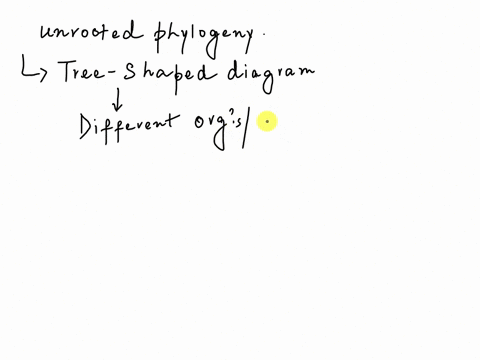 unrooted phylogeny.
↳ Tree-shaped diagram
↓
Different org?s/